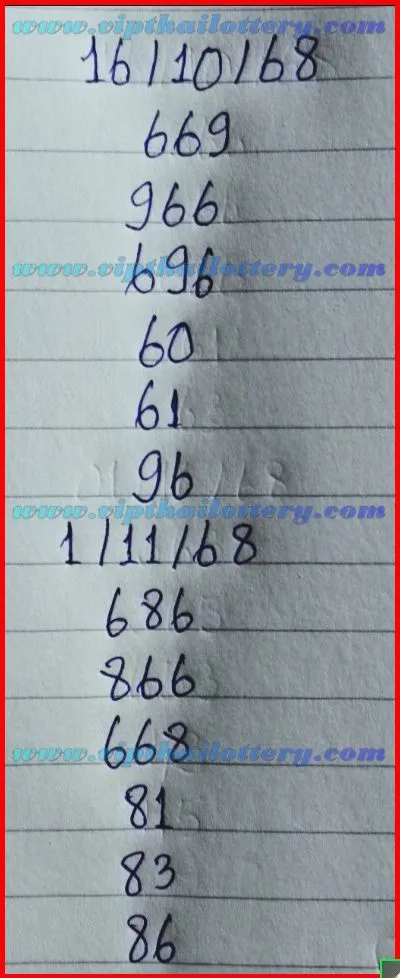 www.vipthailottery.com
16/10/68
669
966
www.vipthailottery.com
696
60
61
96
www.vipthailottery.com
1/11/68
686
866
668
www.vipthailottery.com
81
83
86